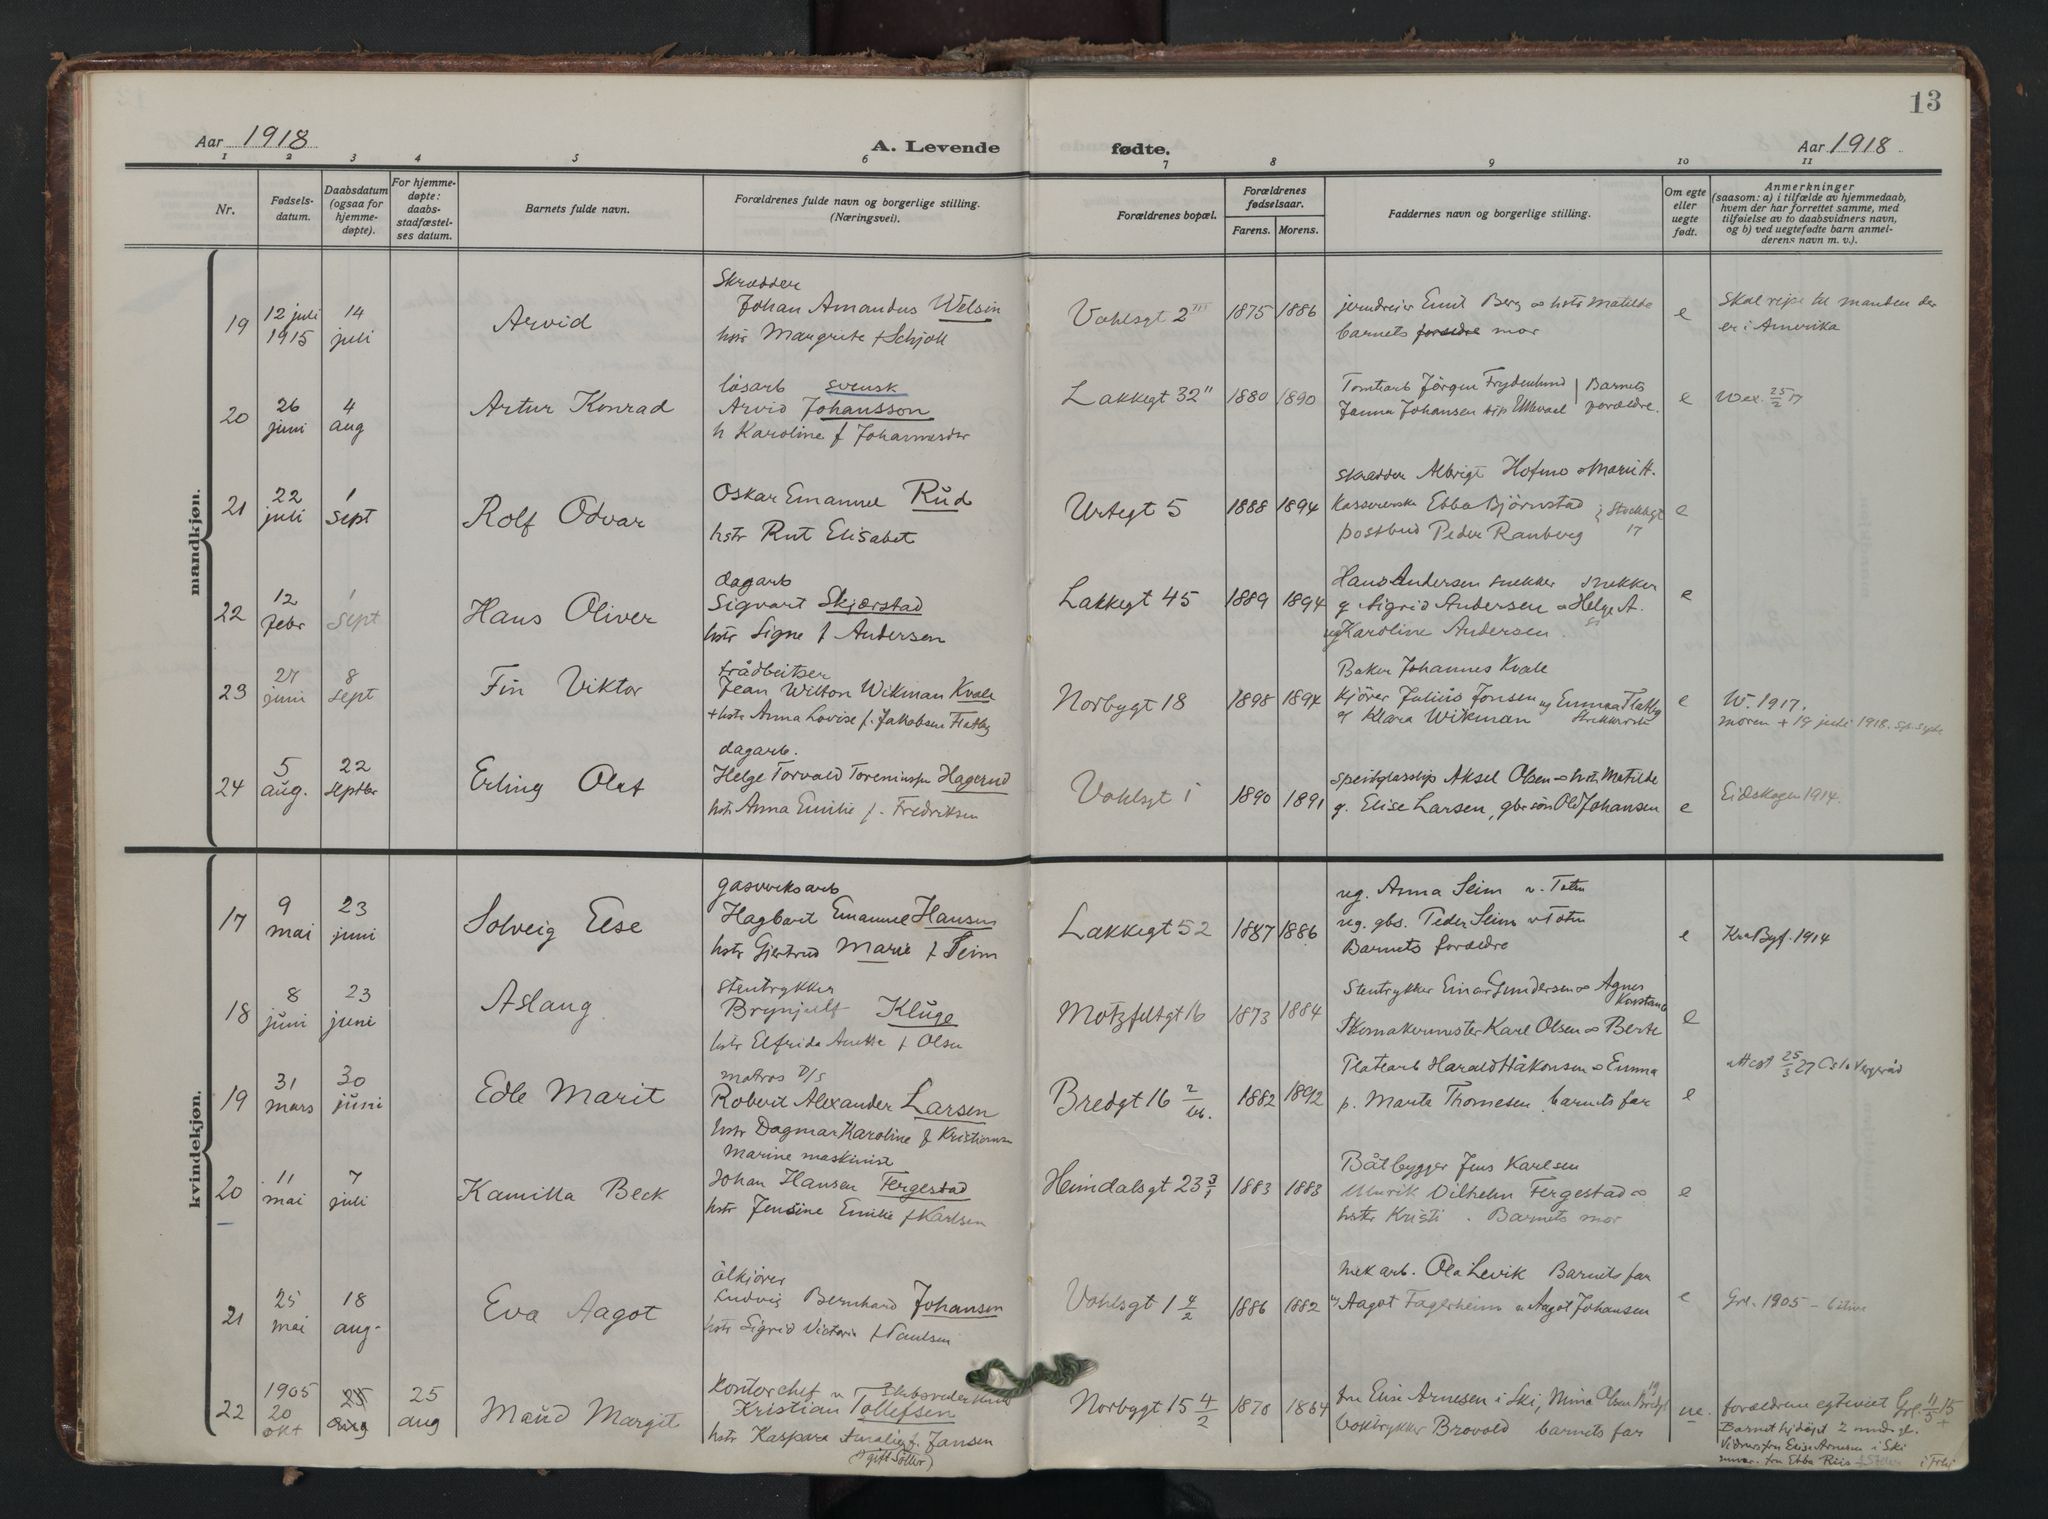 13
Aar 1918
A. Levende
fødte.
Aar 1918
1 2 3 4 5 6 7 8 9 10 11
Nr.
Fødsels-
datum.
Daabsdatum
(ogsaa for
hjemme-
døpte).
For hjemme-
døpte:
daabs-
stadfæstel-
ses datum.
Barnets fulde navn.
Forældrenes fulde navn og borgerlige stilling.
(Næringsvei).
Forældrenes bopæl.
Forældrenes
fødselsaar.
Farens. Morens.
Faddernes navn og borgerlige stilling.
Om egte
eller
uegte
født.
Anmerkninger
(saasom: a) i tilfælde av hjemmedaab,
hvem der har forrettet samme, med
tilføielse av to daabsvidners navn,
og b) ved uegtefødte barn anmel-
derens navn m. v.).
mandkjøn.
19
12 juli
1915
14
juli
Arvid
Skrædder
Johan Amandus Welsin
hstr Margrete f Schjøll
Vahlsgt 2 III
1875 1886
jerndreier Emil Berg o hstr Matilde
barnets forældre mor
e
Skal rejse til manden der
er i Amerika
20
26
juni
4
aug
Artur Konrad
løsarb svensk
Arvid Johansson
h Karoline f Johannesdtr
Lakkegt 32"
1880 1890
Tomtearb Jörgen Frydenlund | Barnets
Janna Johansen Ullevaal forældre.
e
25/2 17
21
22
juli
1
sept
Rolf Odvar
Oskar Emanuel Rud
hstr Rut Elisabet
Urtegt 5
1888 1894
skrædder Albrigt Hofmo o Marie H.
Kassererske Ebba Bjørnstad
postbud Peder Ranberg 17
e
22
12
febr
1
sept
Hans Oliver
dagarb
Sigvart Skjærstad
hstr Signe f Andersen
Lakkegt 45
1889 1894
Hans Andersen snekker snekker
g Sigrid Andersen o Helge A.
ug Karoline Andersen.
e
23
27
juni
8
sept
Fin Viktor
trådbeitser
Jean Wilton Wikman Kvale
+ hstr Anna Lovise f. Jakobsen Flatby
Norbygt 18
1898 1894
Baker Johannes Kvale
kjører Julius Jonsen ug Emma Flatby
g Klara Wikman
e
W. 1917.
moren + 19 juli 1918.
24
5
aug.
22
septbr
Erling Olaf
dagarb.
Helge Torvald Hagerud
hstr Anna Emilie f. Fredriksen
Vahlsgt 1
1890 1891
Aksel Olsen o hstr Matilde
g. Elise Larsen, gbr søn Olaf Johansen
e
Eidskogen 1914.
kvindekjøn.
17
9
mai
23
juni
Solveig Else
gasverksarb
Hagbart Emanuel Hansen
hstr Gjertrud Marie f Seim
Lakkegt 52
1887 1886
ug. Anna Seim v. Toten
ug. gbs. Peder Seim v Toten
Barnets forældre
e
Kra Byf. 1914
18
8
juni
23
juni
Aslaug
stentrykker
Brynjulf Kluge
hstr Elfrida Anette f Olsen
Motzfeltgt 16
1873 1884
Stentrykker Einar Gundersen o Agnes
Konstanse
Skomakermester Karl Olsen o Berte
e
19
31
mars
30
juni
Edle Marit
matros D/S
Robert Alexander Larsen
hstr Dagmar Karoline f Kristiansen
Bredgt 16 2/
1882 1892
Platearb Harald Håkonsen o Emma
p. Marta Thomesen barnets far
e
attest 25/3 27 Oslo Vergeråd
20
11
mai
7
juli
Kamilla Beck
Marine maskinist
Johan Hansen Fergestad
hstr Jensine Emilie f Karlsen
Heimdalsgt 23 3/1
1883 1883
Båtbygger Jens Karlsen
Vilhelm Fergestad o
hstr Kristi. Barnets mor
e
21
25
mai
18
aug.
Eva Aagot
ölkjører
Ludvig Bernhard Johansen
hstr Sigrid Victoria f Paulsen
Vahlsgt 1 4/2
1886 1882
mek arb. Ola Levik Barnets far
Aagot Fagerheim o Aagot Johansen
e
Grl. 1905
22
1905
20
okt
25
aug
25
aug
Maud Margit
kontorchef
Kristian Tollefsen
hstr Kaspara Amalie f. Jansen
Norbygt 15 4/2
1870 1864
fru Elise Arnesen i Ski, Mina Olsen
boktrykker Brovold barnets far
ue.
forældrene egteviet Grl. 11/5 15
Barnet hjdøpt 2 mndr gl.
Vidner: fru Elise Arnesen i Ski
fru Ebba Riis